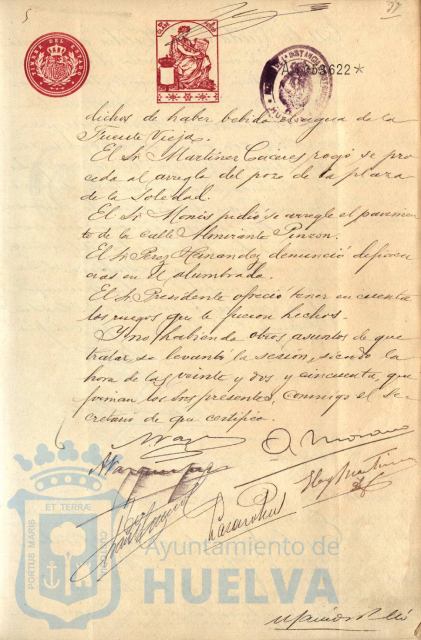 5
77
TIMBRE DEL ESTADO
A 053622*
HUELVA
dichos de haber bebido agua de la
Fuente Vieja.
El Sr. Martinez Cáceres rogó se pro
ceda al arreglo del pozo de la plaza
de la Soledad.
El Sr. Monís pidió se arregle el pavimen
to de la calle Almirante Pinzon.
El Sr. Perez Hernandez denunció deficien
cias en el alumbrado.
El Sr. Presidente ofreció tener en cuenta
los ruegos que le fueron hechos.
Y no habiendo otros asuntos de que
tratar se levantó la sesión, siendo la
hora de las veinte y dos y cincuenta, que
firman los Sres presentes, conmigo el Se-
cretario de que certifico.
O. Moreno
Eloy Martinez
PORTUS MARIS ET TERRÆ
Ayuntamiento de
HUELVA